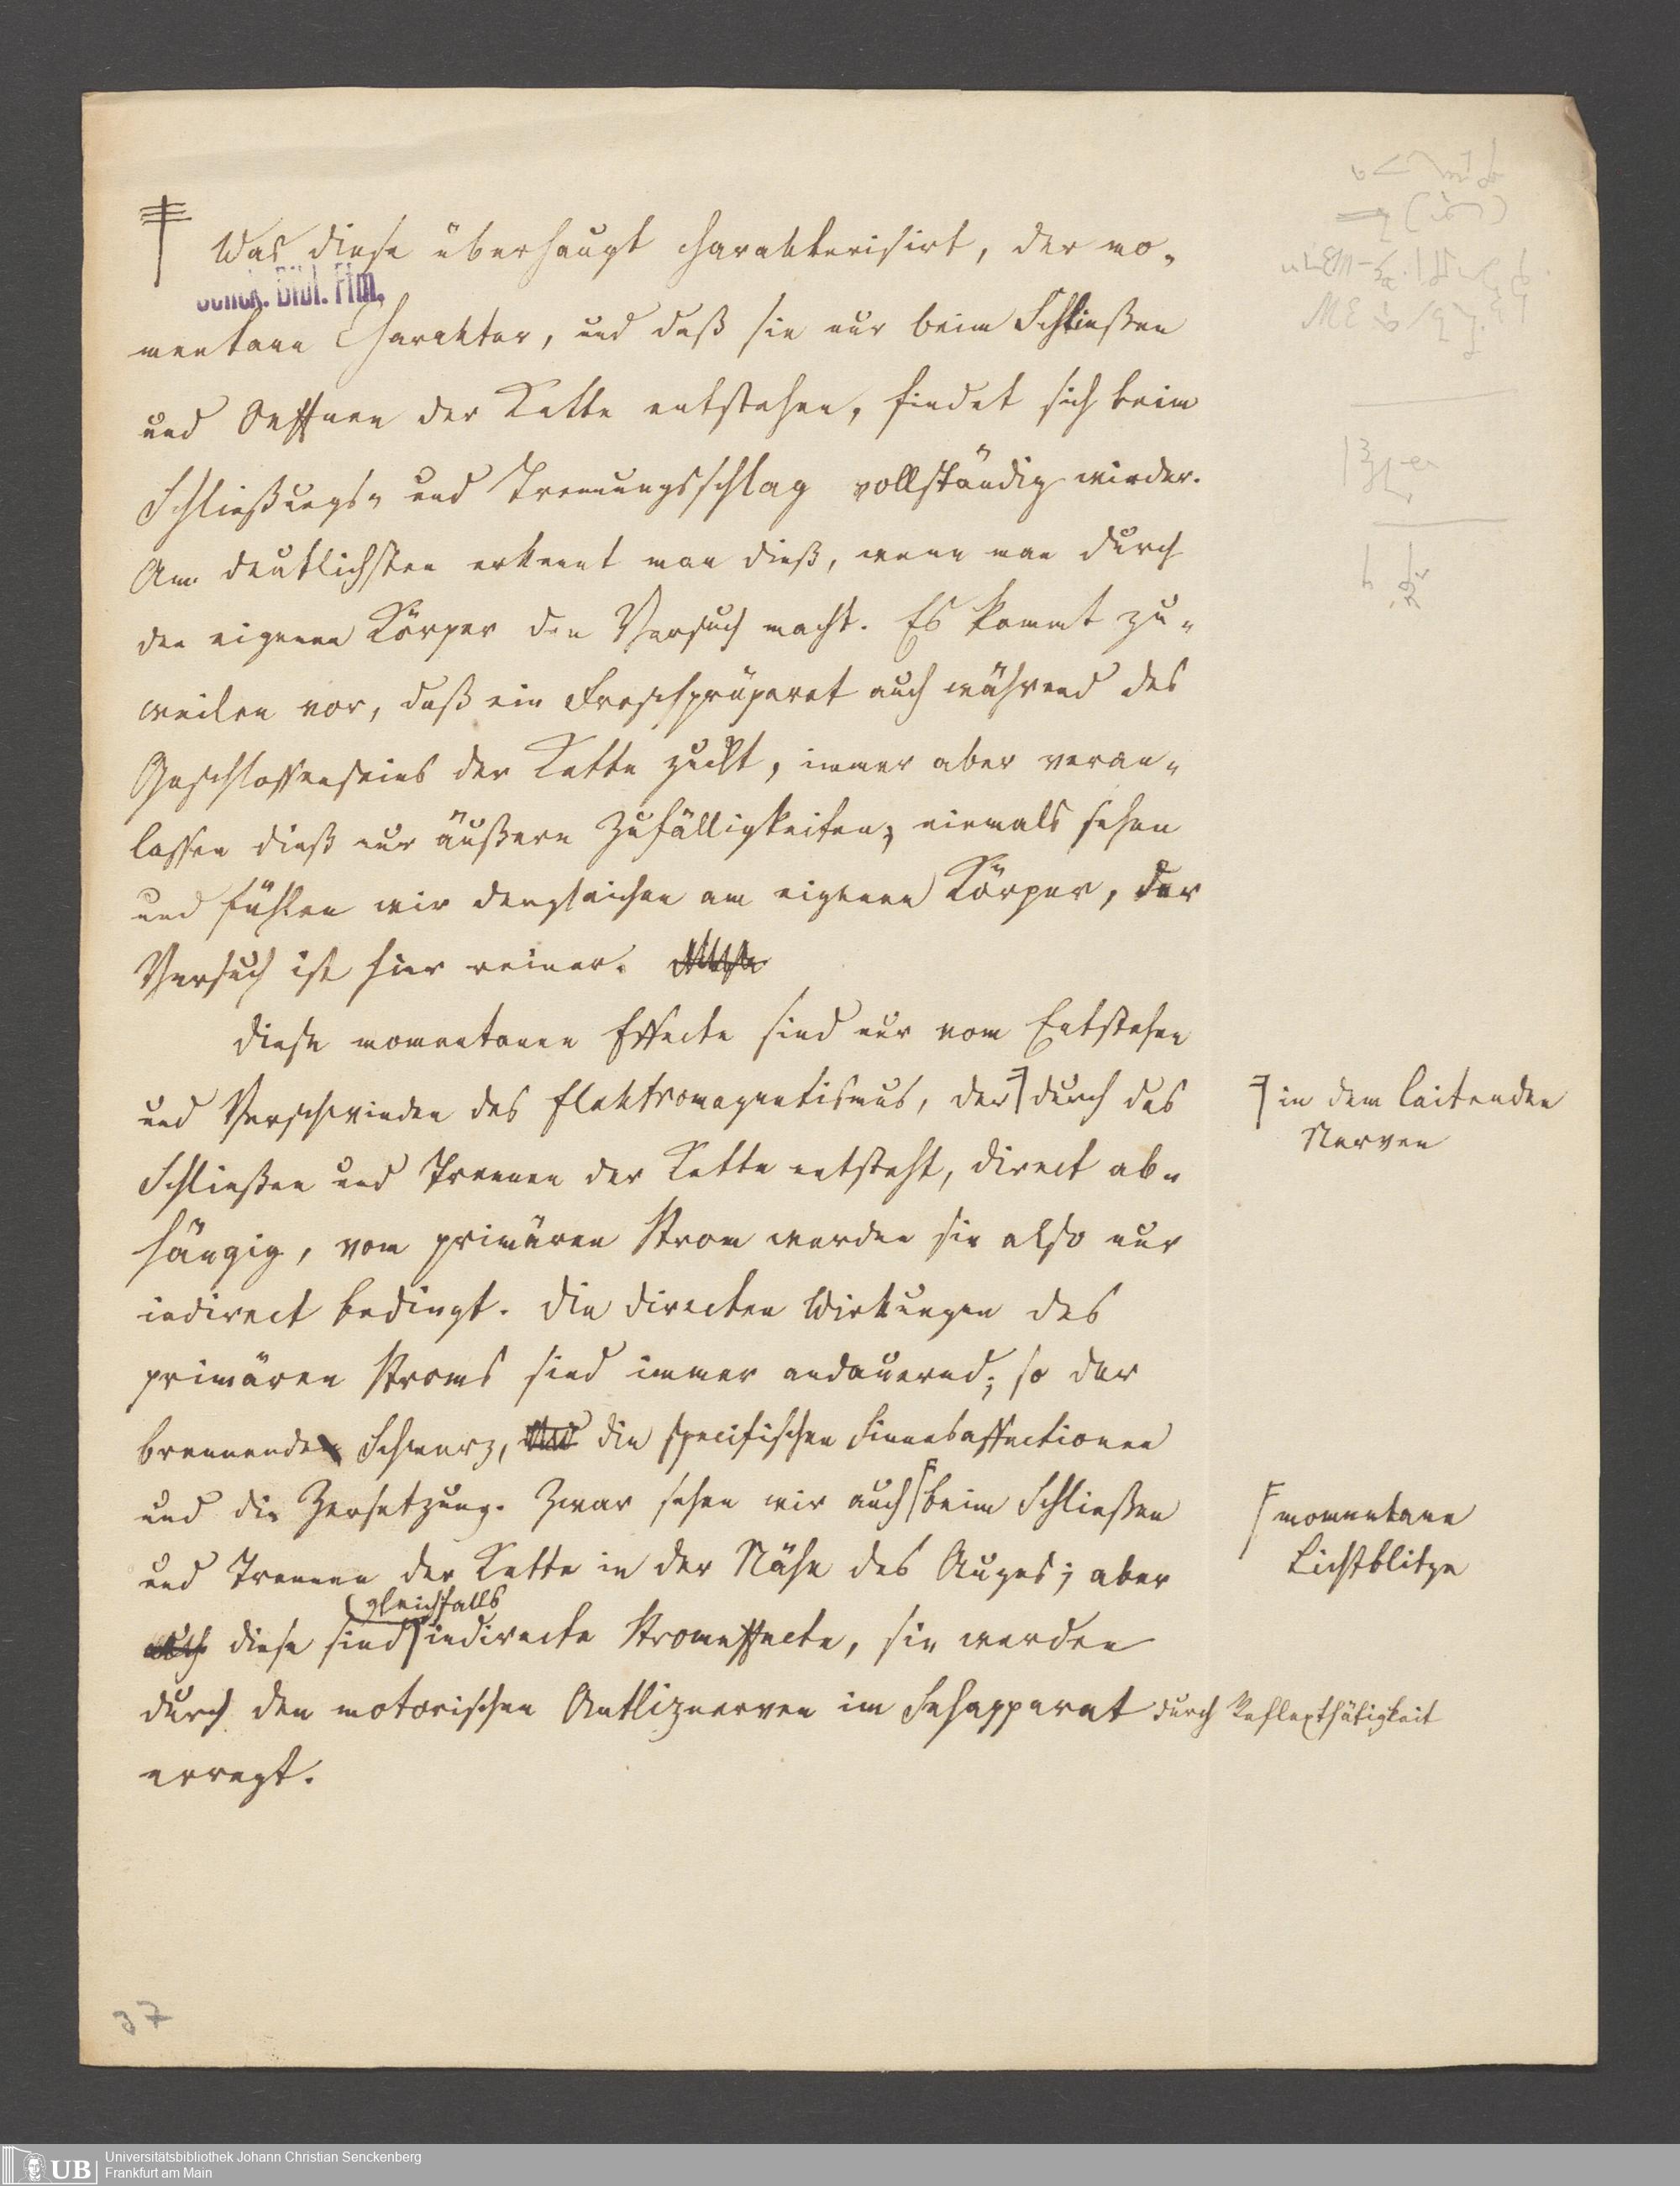 Was diese überhaupt charakterisirt, der mo-
Senck. Bibl. Ffm.
mentane Charakter, und daß sie nur beim Schließen
und Oeffnen der Kette entstehen, findet sich beim
Schließungs- und Trennungsschlag vollständig wieder.
Am deutlichsten erkennt man dieß, wenn man durch
den eigenen Körper den Versuch macht. Es kommt zu-
weilen vor, daß ein Froschpräparat auch während des
Geschlossenseins der Kette zuckt, immer aber veran-
lassen dieß nur äußere Zufälligkeiten; niemals sehen
und fühlen wir dergleichen am eigenen Körper, der
Versuch ist hier reiner.
Diese momentanen Effecte sind nur vom Entstehen
und Verschwinden des Elektromagnetismus, der durch das
in dem leitenden
Nerven
Schließen und Trennen der Kette entsteht, direct ab-
hängig, vom primären Strom werden sie also nur
indirect bedingt. Die directen Wirkungen des
primären Stroms sind immer andauernd; so der
brennende Schmerz, die specifischen Sinnesaffectionen
und die Zersetzung. Zwar sehen wir auch beim Schließen
momentane
Lichtblitze
und Trennen der Kette in der Nähe des Auges; aber
gleichfalls
auch diese sind indirecte Stromeffecte, sie werden
durch den motorischen Antliznerven im Sehapparat durch Reflexthätigkeit
erregt.
37
Universitätsbibliothek Johann Christian Senckenberg
Frankfurt am Main
UB